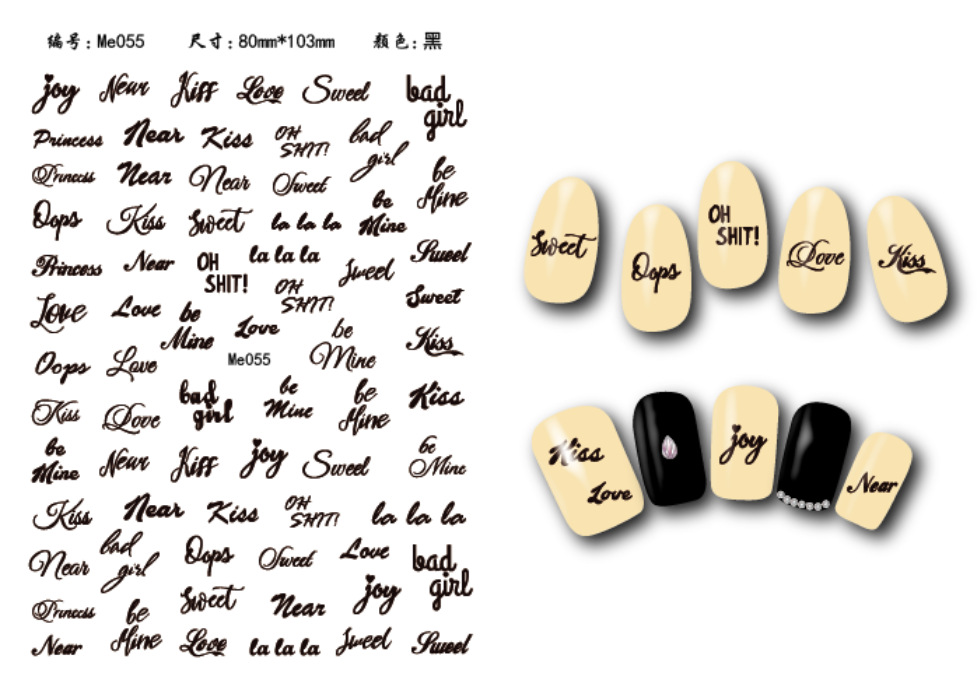 编号：Me055 尺寸：80mm*103mm 颜色：黑
joy Near Kiss Love Sweet bad girl
Princess Near Kiss OH SHIT! bad girl
Princess Near Near Sweet be Mine
Oops Kiss Sweet la la la be Mine
Princess Near OH SHIT! la la la Sweet Sweet
Love Love be Mine OH SHIT! Sweet
Love be Mine Kiss
Me055
Oops Love
bad girl be Mine be Mine Kiss
Kiss Love
be Mine Near Kiss joy Sweet be Mine
Kiss Near Kiss OH SHIT! la la la
Near bad girl Oops Sweet Love bad girl
Princess be Mine Sweet Near joy
Near Love la la la Sweet Sweet
Sweet Oops OH SHIT! Love Kiss
Kiss Love joy Near